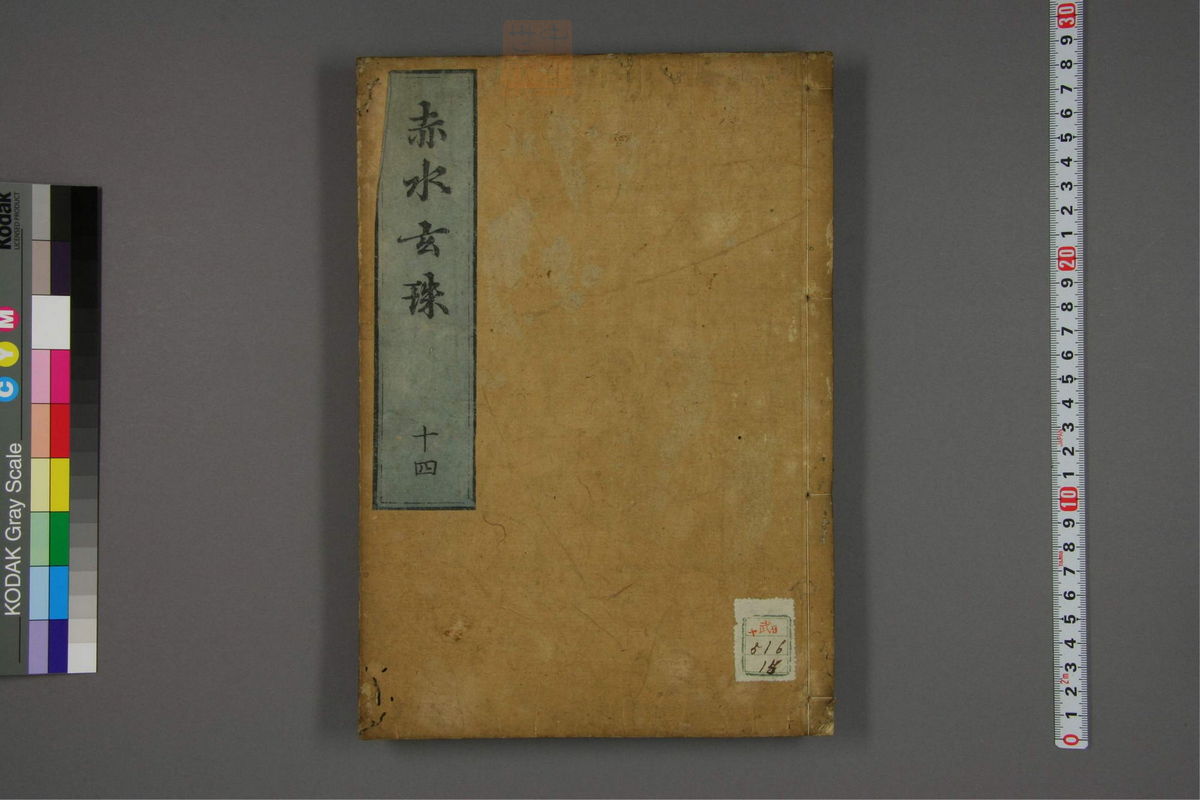 赤水玄珠
十四
武
516
15
Kodak
LICENSED PRODUCT
C Y M
KODAK Gray Scale
30
9
8
7
6
5
4
3
2
1
20
9
8
7
6
5
4
3
2
1
10
9
8
7
6
5
4
3
2m
2
1
0